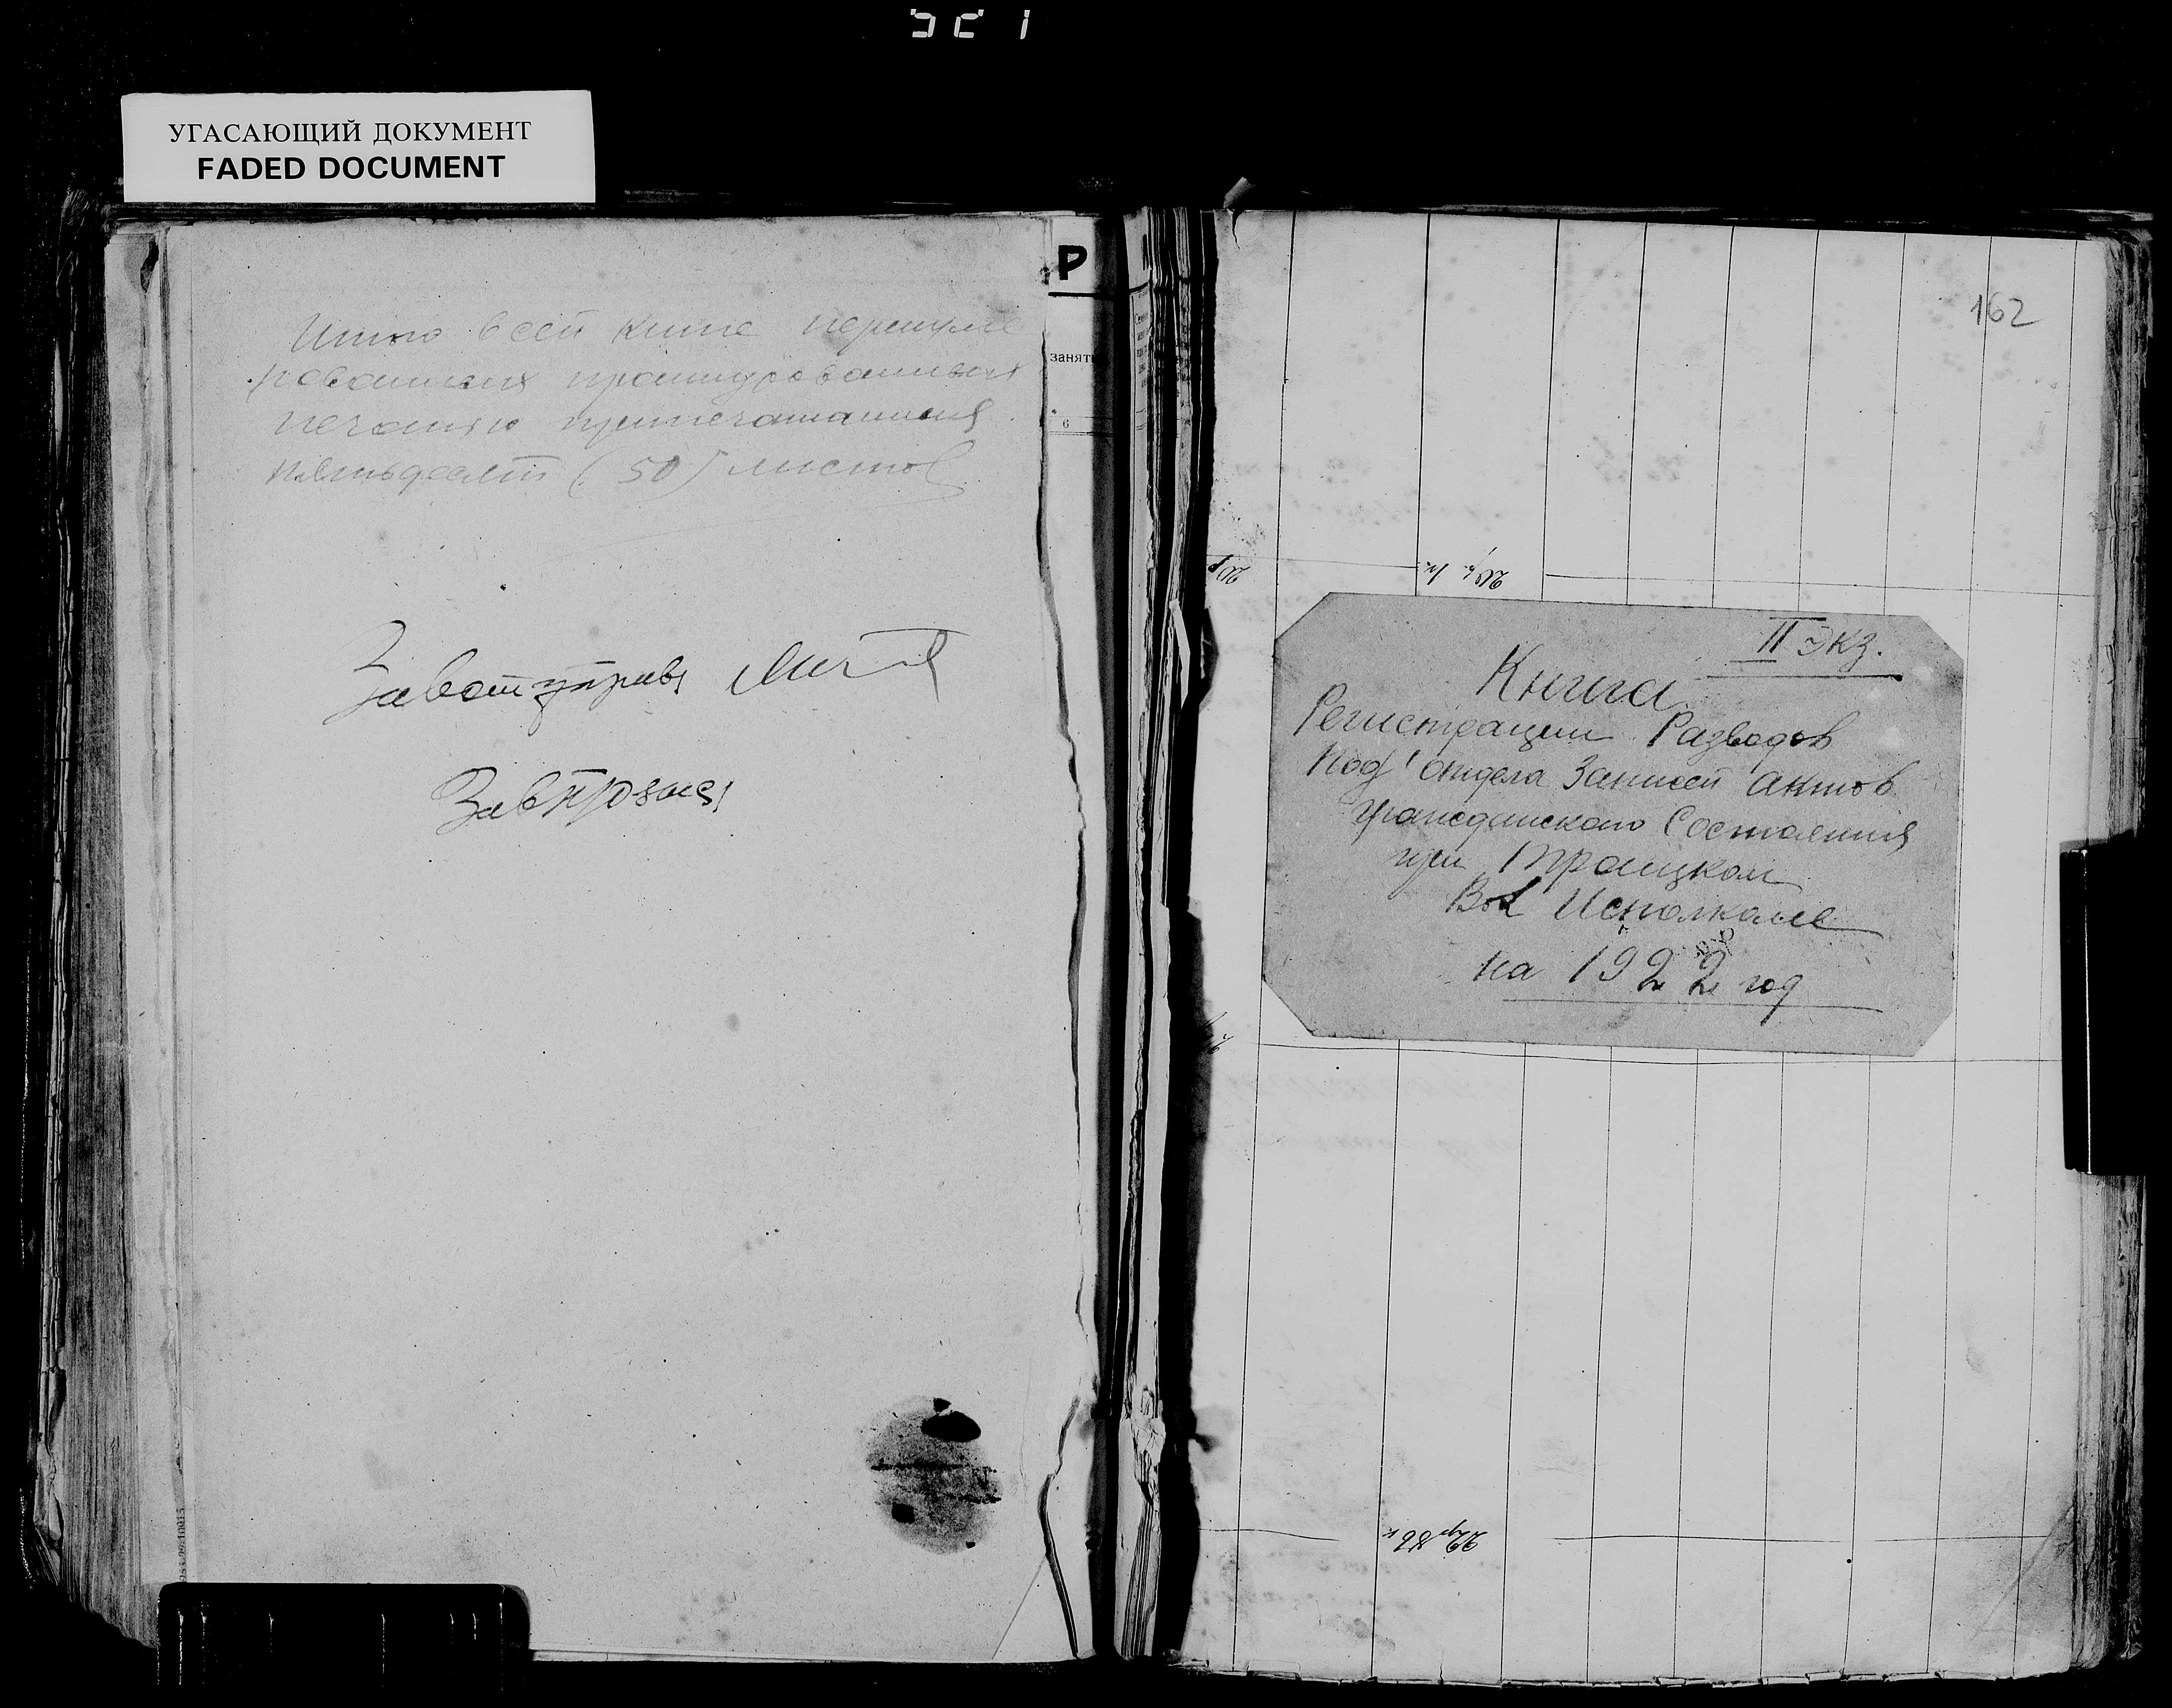 УГАСАЮЩИЙ ДОКУМЕНТ
FADED DOCUMENT
Итого всей книге перенуме
рованных прошнурованных
печатью припечатанныя
пятьдесят (50) листов
Завотуправ
Р
занят
6
162
II Экз.
Книга
Регистрации Разводов
Под'отдела Записей Актов
Гражданского Состояния
при Троицком
Вол Исполкоме
на 1922 год